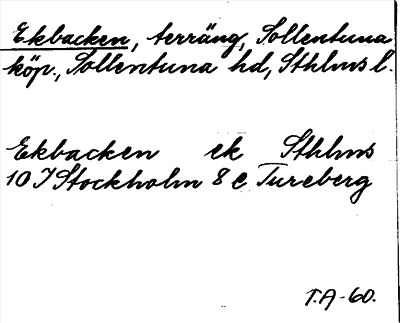 Ekbacken, terräng, Sollentuna
köp., Sollentuna hd, Sthlms l.
Ekbacken ek Sthlms
10 I Stockholm 8 e Tureberg
T.A-60.